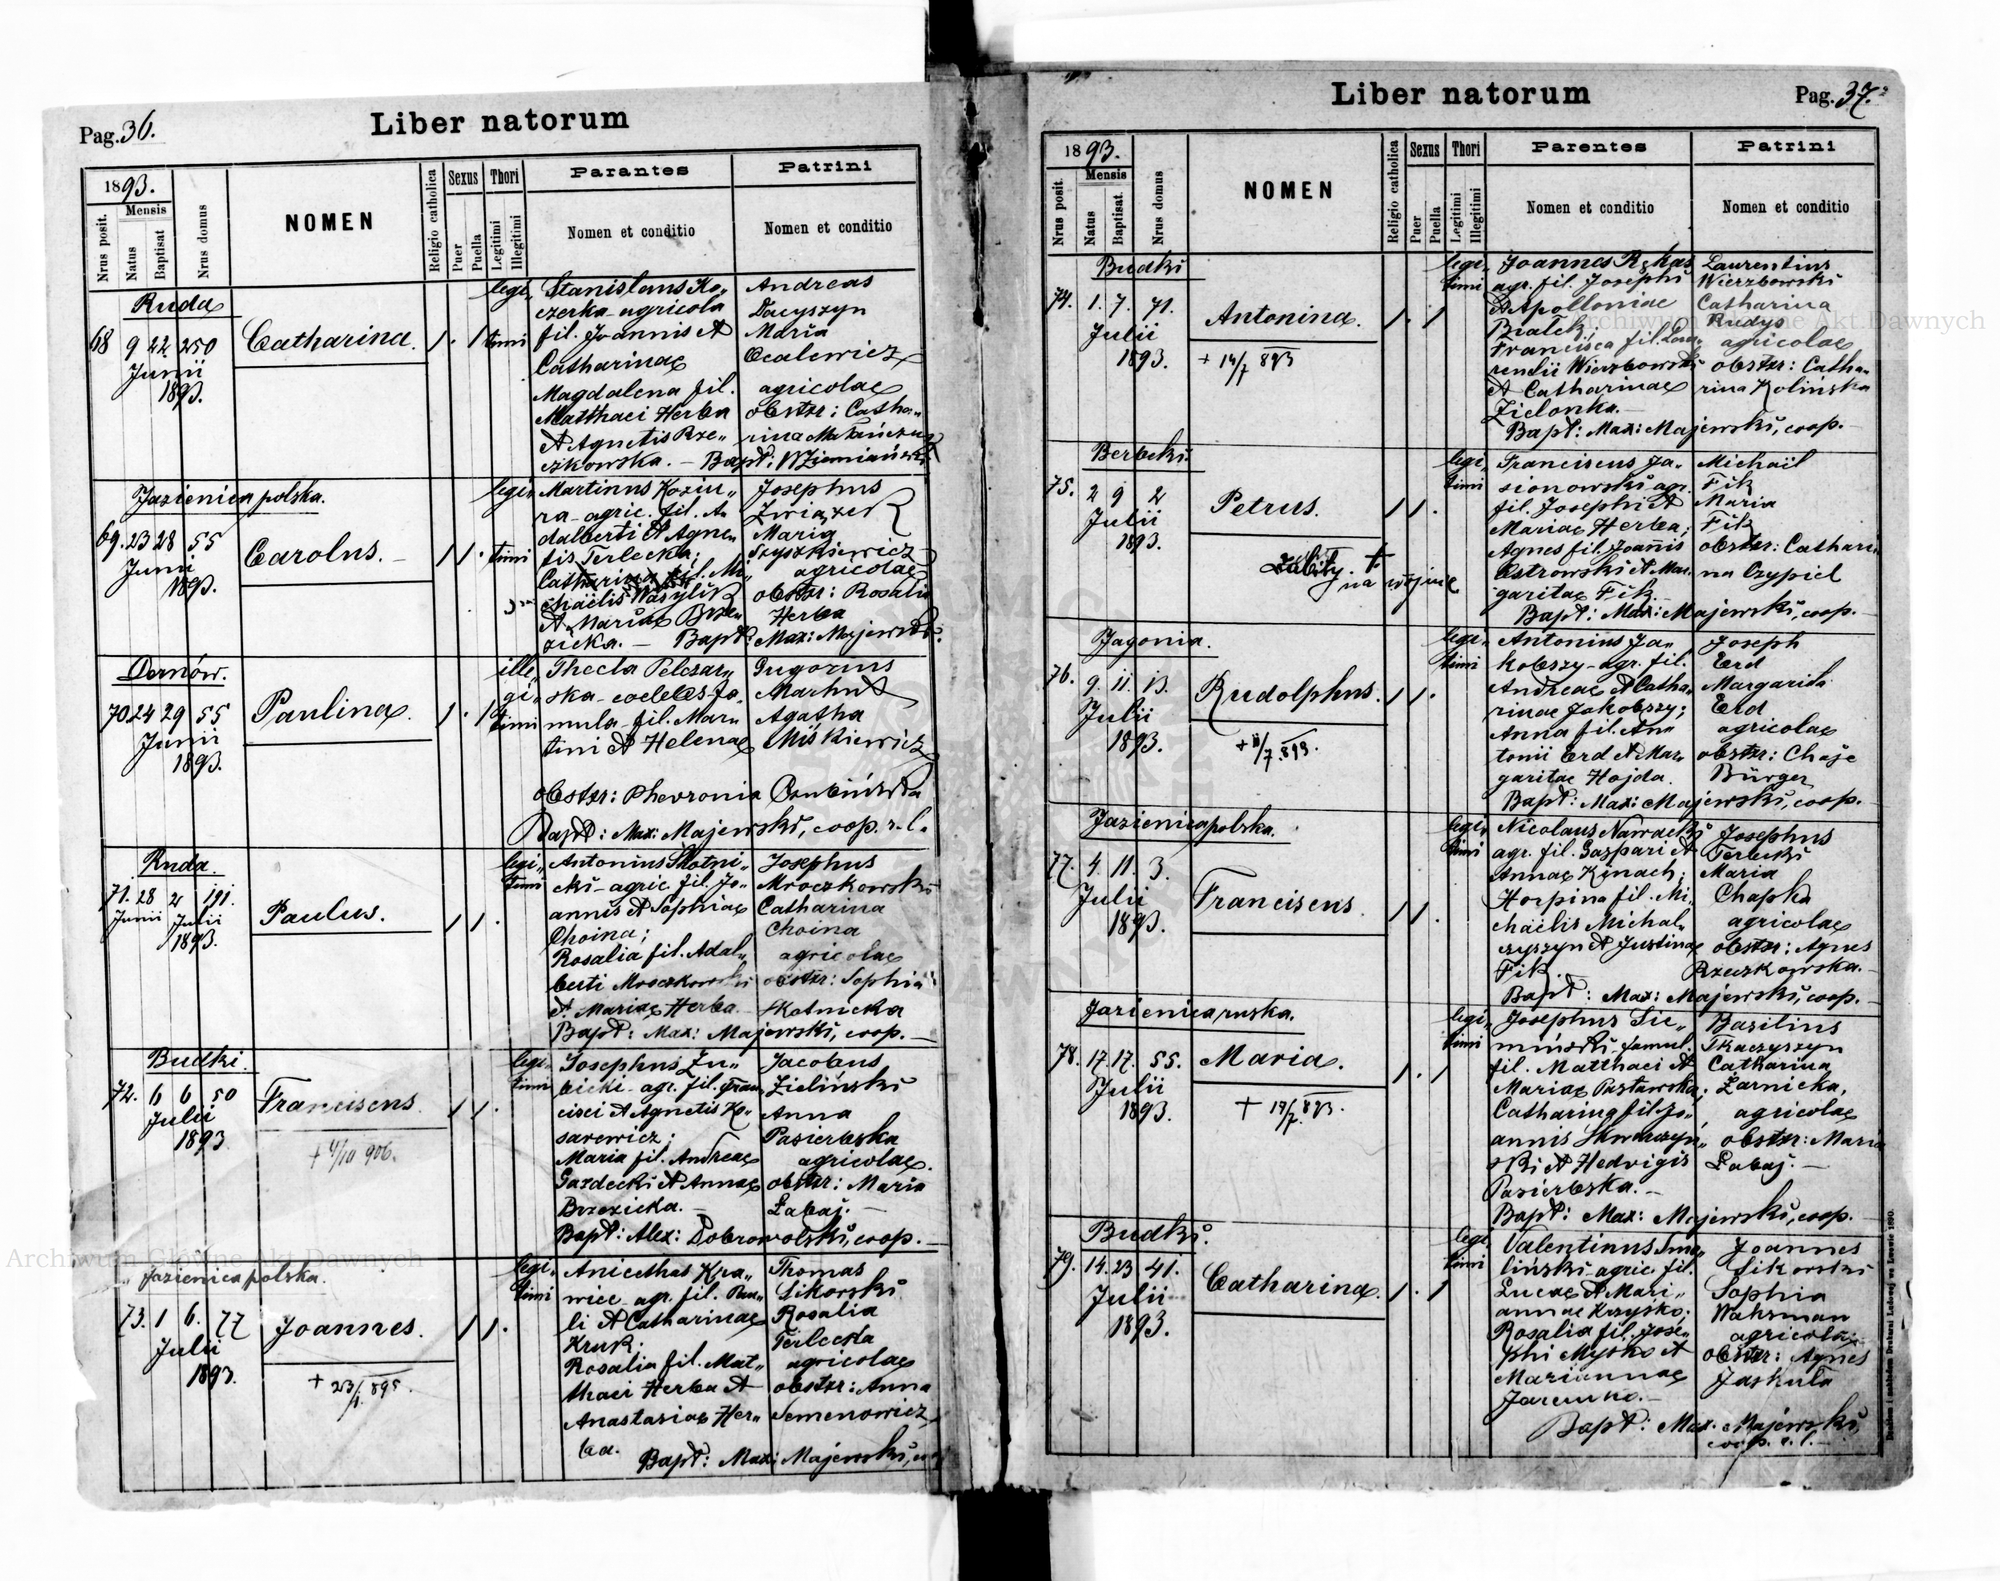 Pag. 36.
Liber natorum
1893.
Mensis
Nrus posit.
Natus
Baptisat
Nrus domus
NOMEN
Religio catholica
Sexus
Puer
Puella
Thori
Legitimi
Illegitimi
Parantes
Nomen et conditio
Patrini
Nomen et conditio
Ruda
68 9 22 250
Junii
1893.
Catharina.
1 . 1
legi„
timi
Stanislaus Ko„
czerka agricola
fil. Joannis et
Catharinae
Magdalena fil.
Matthaei Herba
et Agnetis Rze„
czkowska. —
Andreas
Dacyszyn
Maria
agricolae
obstr: Catha„
Jazienica polska.
69. 23 28 55
Junii
1893.
Carolus. —
1 1 .
legi„
timi
Martinus Koziu„
ra agric. fil. A
dalberti et Agne„
tis Terlecka;
Catharina fil. Mi„
chaëlis Wasylik
et Maria Brze„
zicka. — Bapt: Max: Majewski.
Josephus
Maria
Szyszkiewicz
agricolae
obstr: Rosalia
Herba
Dernów.
70 24 29 55
Junii
1893.
Paulina.
1 . 1
ille„
gi„
timi
Thecla Pelczar„
ska coelebs fa„
mula fil. Mar„
tini et Helenae
Gregorius
Marhut
Agatha
Miskiewicz
obstr: Phevronia
Bapt: Max: Majewski, coop. r. l.
Ruda.
71. 28 2 191.
Junii Julii
1893.
Paulus.
1 1 .
legi„
timi
Antonius Skotni„
cki agric. fil. Jo„
annis et Sophiae
Choina;
Rosalia fil. Adal„
berti Mroczkowski
et Mariae Herba
Bapt: Max: Majewski, coop. —
Josephus
Mroczkowski
Catharina
Choina
agricolae
obstr: Sophia
Skotnicka
Budki.
72. 6 6 50
Julii
1893
Franciscus.
+ 4/10 906.
1 1 .
legi„
timi
Josephus Zu„
bicki agr. fil. Fran„
cisci et Agnetis Ko„
sarewicz;
Maria fil. Andreae
Gazdecki et Annae
Brzezicka. —
Bapt: Alex: Dobrowolski, coop. —
Jacobus
Zieliński
Anna
Pasierbska
agricolae.
obstr: Maria
Łabaj. —
Jazienica polska.
73. 1 6. 77
Julii
1893.
Joannes.
1 1 .
legi„
timi
Anicethus Kra„
wiec agr. fil. Pau„
li et Catharinae
Kruk;
Rosalia fil. Mat„
thaei Herba et
Anastasiae Her„
ba.
Bapt: Max: Majewski,
Thomas
Sikorski
Rosalia
Terlecka
agricolae
obstr: Anna
Semenowicz
Pag. 37.
Liber natorum
1893.
Mensis
Nrus posit.
Natus
Baptisat.
Nrus domus
NOMEN
Religio catholica
Sexus
Puer
Puella
Thori
Legitimi
Illegitimi
Parentes
Nomen et conditio
Patrini
Nomen et conditio
Budki
74. 1. 7. 71.
Julii
1893.
Antonina.
+ 14/7 893
1 . 1
legi„
timi
Joannes Rękas
agr. fil. Josephi
et Apolloniae
Białek;
Francisca fil. Lau„
rendii Wierzbowski
et Catharinae
Zielonka. —
Bapt: Max: Majewski, coop. —
Laurentius
Wierzbowski
Catharina
Rudys
agricolae
obstr: Catha„
rina Kolińska
Berbeki.
75. 2 9 2
Julii
1893.
Petrus.
zabity +
na wojnie
1 1 .
legi„
timi
Franciscus Ja„
sionowski agr.
fil. Josephi et
Mariae Herba;
Agnes fil. Joannis
Ostrowski et Mar„
garitae Fik.
Bapt: Max: Majewski, coop. —
Michaël
Fik
Maria
Fik
obstr: Cathari
na Czypiel
Jagonia.
76. 9. 11. 13.
Julii
1893.
Rudolphus.
1 1 .
legi„
timi
Antonius Ja„
kobszy agr. fil.
Andreae et Catha„
rinae Jakobszy;
Anna fil. An„
tonii Erd et Mar„
garitae Hojda.
Bapt: Max: Majewski, coop. —
Joseph
Erd
Margarita
Erd
agricolae
obstr: Chaje
Bürger
Jazienica polska.
77. 4. 11. 3.
Julii
1893.
Franciscus
1 1 .
legi„
timi
Nicolaus Nawacki
agr. fil. Gaspari et
Annae Kinach;
Horpina fil. Mi„
chaëlis Michal„
czyszyn et Justinae
Fik. —
Bapt: Max: Majewski, coop. —
Josephus
Terlecki
Maria
Chapka
agricolae
obstr: Agnes
Rzeczkowska. —
Jazienica ruska.
78. 17. 17. 55.
Julii
1893.
Maria.
+ 19/7. 893.
1 . 1
legi„
timi
Josephus Sie„
miński, famul.
fil. Matthaei et
Mariae Pastawska;
Catharina fil. Jo„
annis Skwarczyń„
ski et Hedvigis
Pasierbska. —
Bapt: Max: Majewski, coop. —
Basilius
Tkaczyszyn
Catharina
Żarnicka,
agricolae
obstr: Maria
Łabaj. —
Budki.
79. 14. 23 41.
Julii
1893.
Catharina.
1 . 1
legi„
timi
Valentinus Smo„
liński agric. fil.
Lucae et Mari„
annae Krzyśko;
Rosalia fil. Jose„
phi Myśko et
Mariannae
Jaremko. —
Bapt: Max. Majewski,
coop. r. l. —
Joannes
Sikorski
Sophia
Wahrman
agricolae
obstr: Agnes
Jaskuła
Archiwum Główne Akt Dawnych
Archiwum Główne Akt Dawnych